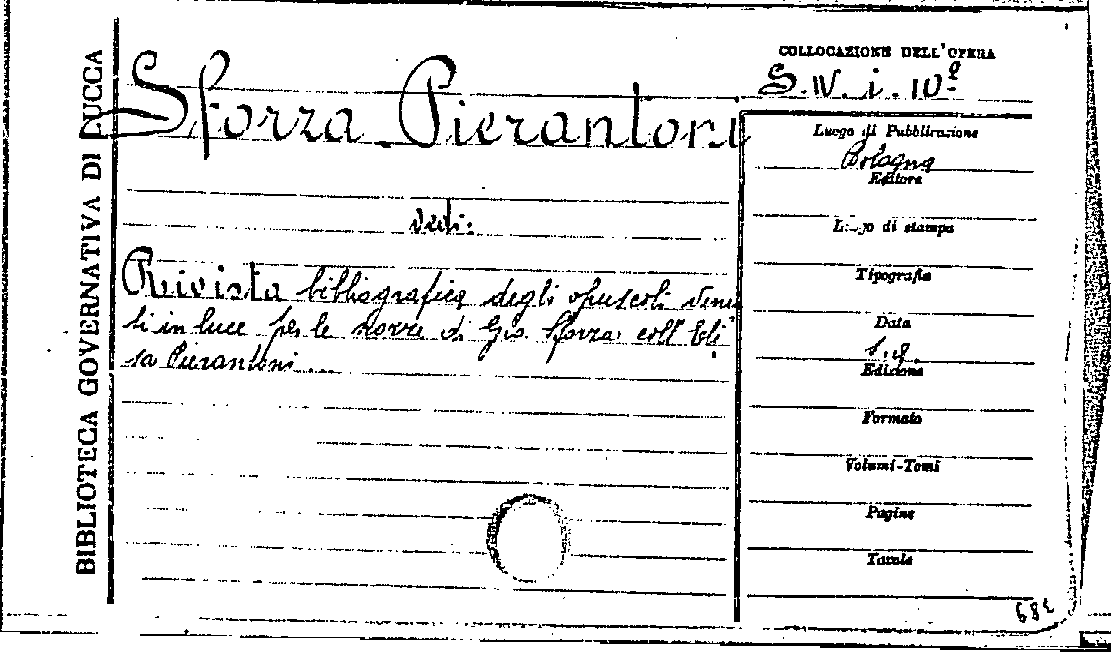 BIBLIOTECA GOVERNATIVA DI LUCCA
Sforza-Pierantoni
vedi:
Rivista bibliografica degli opuscoli venu
ti in luce per le nozze di Gio. Sforza coll' Eli
sa Pierantoni...
COLLOCAZIONE DELL'OPERA
S. IV. i. 10º
Luogo di Pubblicazione
Bologna
Editore
Luogo di stampa
Tipografia
Data
Edizione
Formato
Volumi-Tomi
Pagine
Tavole